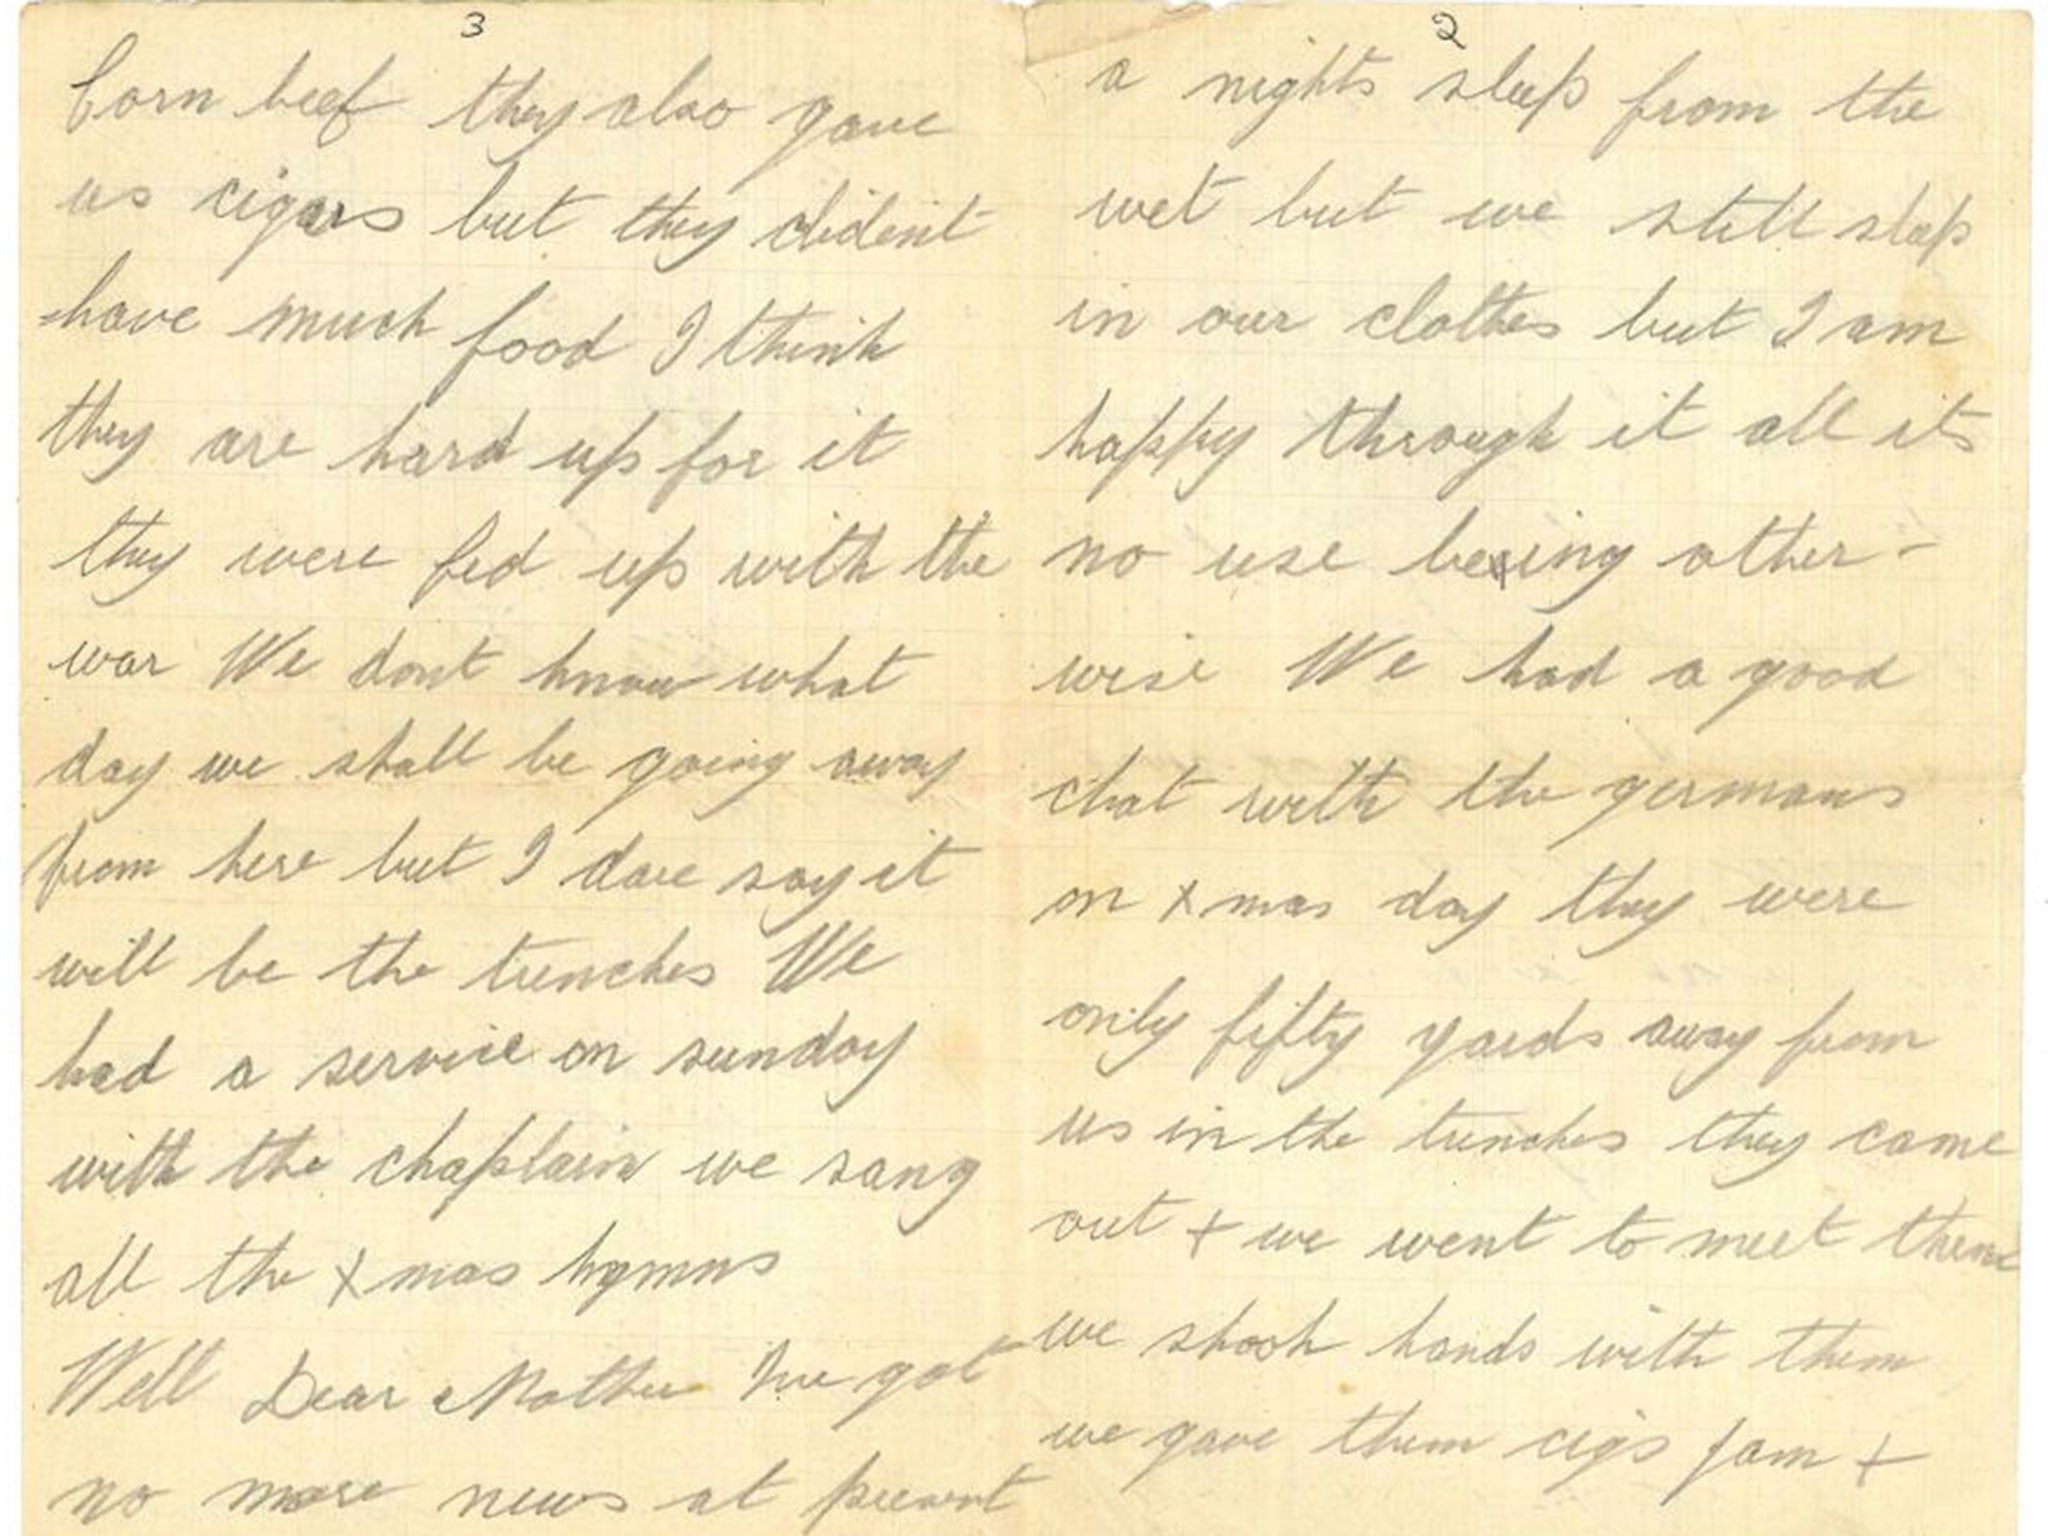 2
a nights sleep from the
wet but we still sleep
in our clothes but I am
happy through it all its
no use being other-
wise We had a good
chat with the germans
on xmas day they were
only fifty yards away from
us in the trenches they came
out + we went to meet them
we shook hands with them
we gave them cigs jam +
3
Corn beef they also gave
us cigars but they dident
have much food I think
they are hard up for it
they were fed up with the
war We dont know what
day we shall be going away
from here but I dare say it
will be the trenches We
had a service on sunday
with the chaplain we sang
all the xmas hymns
Well Dear Mother Ive got
no more news at present